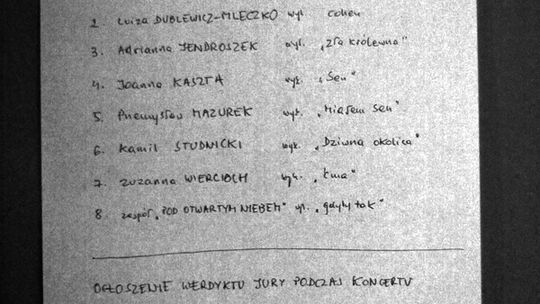 2. Luiza DUBLEWICZ-MLECZKO wyk. Cohen
3. Adrianna JENDROSZEK wyk. "Zła królewna"
4. Joanna KASZTA wyk. "Sen"
5. Przemysław MAZUREK wyk. "Miałem sen"
6. Kamil STUDNICKI wyk. "Dziwna okolica"
7. Zuzanna WIERCIOCH wyk. "Ćma"
8. zespół "POD OTWARTYM NIEBEM" wyk. "gdyby tak"
OGŁOSZENIE WERDYKTU JURY PODCZAS KONCERTU